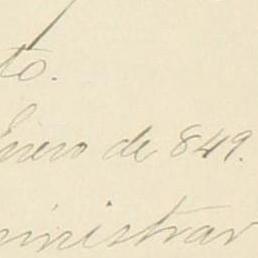 to.
Enero de 849.
ministrar